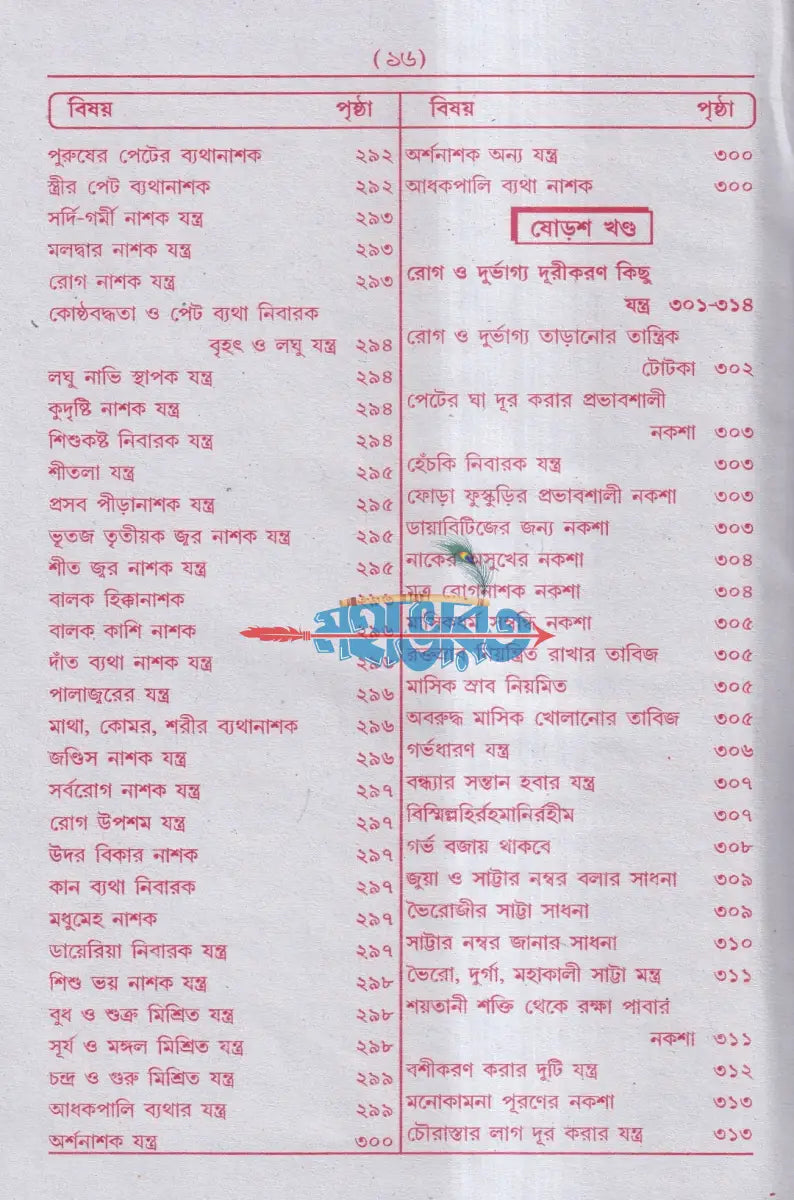 (১৬)
বিষয় পৃষ্ঠা
পুরুষের পেটের ব্যথানাশক ২৯২
স্ত্রীর পেট ব্যথানাশক ২৯২
সর্দি-গর্মী নাশক যন্ত্র ২৯৩
মলদ্বার নাশক যন্ত্র ২৯৩
রোগ নাশক যন্ত্র ২৯৩
কোষ্ঠবদ্ধতা ও পেট ব্যথা নিবারক
বৃহৎ ও লঘু যন্ত্র ২৯৪
লঘু নাভি স্থাপক যন্ত্র ২৯৪
কুদৃষ্টি নাশক যন্ত্র ২৯৪
শিশুকষ্ট নিবারক যন্ত্র ২৯৪
শীতলা যন্ত্র ২৯৫
প্রসব পীড়ানাশক যন্ত্র ২৯৫
ভূতজ তৃতীয়ক জ্বর নাশক যন্ত্র ২৯৫
শীত জ্বর নাশক যন্ত্র ২৯৫
বালক হিক্কানাশক ২৯৬
বালক কাশি নাশক ২৯৬
দাঁত ব্যথা নাশক যন্ত্র ২৯৬
পালাজ্বরের যন্ত্র ২৯৬
মাথা, কোমর, শরীর ব্যথানাশক ২৯৬
জণ্ডিস নাশক যন্ত্র ২৯৬
সর্বরোগ নাশক যন্ত্র ২৯৭
রোগ উপশম যন্ত্র ২৯৭
উদর বিকার নাশক ২৯৭
কান ব্যথা নিবারক ২৯৭
মধুমেহ নাশক ২৯৭
ডায়েরিয়া নিবারক যন্ত্র ২৯৭
শিশু ভয় নাশক যন্ত্র ২৯৮
বুধ ও শুক্র মিশ্রিত যন্ত্র ২৯৮
সূর্য ও মঙ্গল মিশ্রিত যন্ত্র ২৯৮
চন্দ্র ও গুরু মিশ্রিত যন্ত্র ২৯৯
আধকপালি ব্যথার যন্ত্র ২৯৯
অর্শনাশক যন্ত্র ৩০০
বিষয় পৃষ্ঠা
অর্শনাশক অন্য যন্ত্র ৩০০
আধকপালি ব্যথা নাশক ৩০০
ষোড়শ খণ্ড
রোগ ও দুর্ভাগ্য দূরীকরণ কিছু
যন্ত্র ৩০১-৩১৪
রোগ ও দুর্ভাগ্য তাড়ানোর তান্ত্রিক
টোটকা ৩০২
পেটের ঘা দূর করার প্রভাবশালী
নকশা ৩০৩
হেঁচকি নিবারক যন্ত্র ৩০৩
ফোড়া ফুস্কুড়ির প্রভাবশালী নকশা ৩০৩
ডায়াবিটিজের জন্য নকশা ৩০৩
নাকের অসুখের নকশা ৩০৪
মূত্র রোগনাশক নকশা ৩০৪
মাসিকধর্ম নকশা ৩০৫
রক্তস্রাব নিয়ন্ত্রিত রাখার তাবিজ ৩০৫
মাসিক স্রাব নিয়মিত ৩০৫
অবরুদ্ধ মাসিক খোলানোর তাবিজ ৩০৫
গর্ভধারণ যন্ত্র ৩০৬
বন্ধ্যার সন্তান হবার যন্ত্র ৩০৭
বিস্মিল্লহির্রহমানির্রহীম ৩০৭
গর্ভ বজায় থাকবে ৩০৮
জুয়া ও সাট্টার নম্বর বলার সাধনা ৩০৯
ভৈরোজীর সাট্টা সাধনা ৩০৯
সাট্টার নম্বর জানার সাধনা ৩১০
ভৈরো, দুর্গা, মহাকালী সাট্টা মন্ত্র ৩১১
শয়তানী শক্তি থেকে রক্ষা পাবার
নকশা ৩১১
বশীকরণ করার দুটি যন্ত্র ৩১২
মনোকামনা পূরণের নকশা ৩১৩
চৌরাস্তার লাগ দূর করার যন্ত্র ৩১৩
মহাভারত